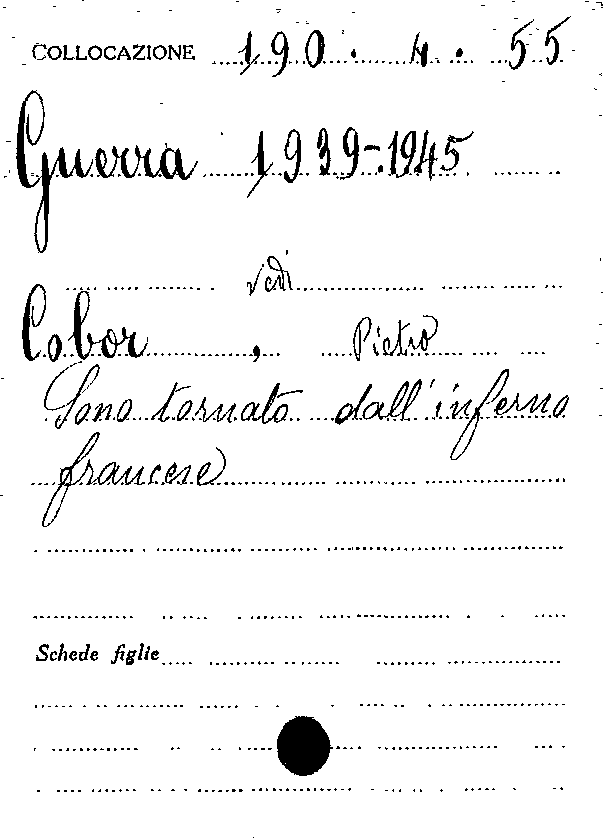 COLLOCAZIONE 190. 4. 55
Guerra 1939-1945
vedi
Cobor, Pietro
Sono tornato dall'inferno
francese
Schede figlie